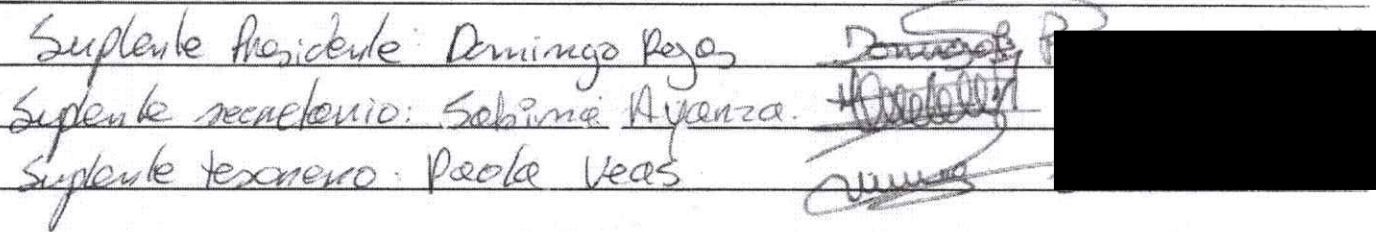 Suplente Presidente: Domingo Reyes Domingo R
Suplente secretario: Sabina Ayanza.
Suplente tesorero: Paola Veas